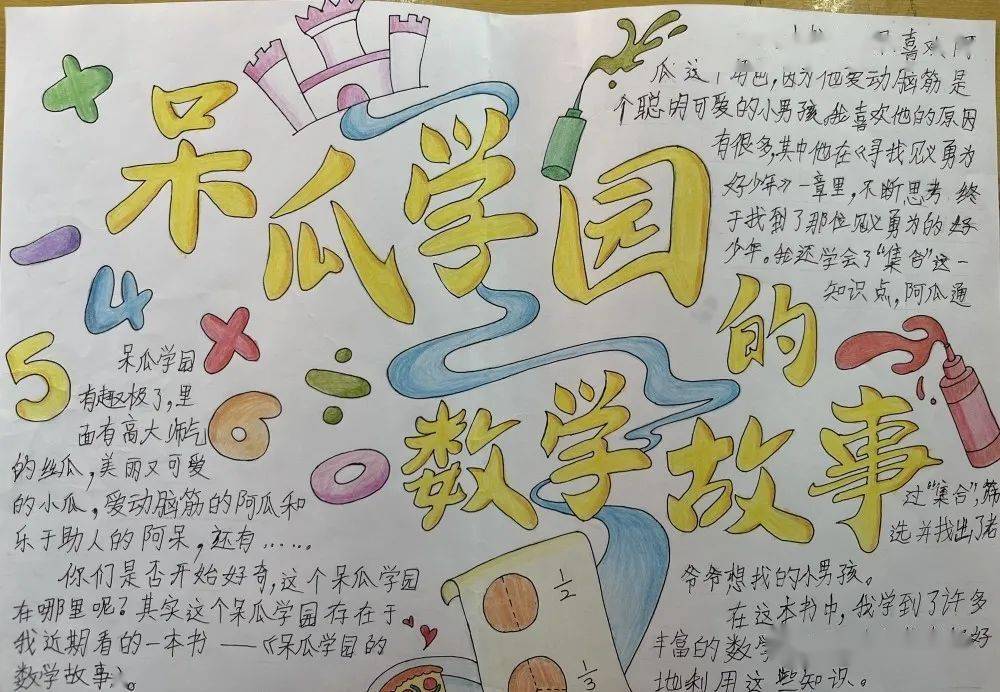 呆瓜学园
的
数学故事
5
4
6
呆瓜学园
有趣极了,里
面有高大帅气
的丝瓜,美丽又可爱
的小瓜,爱动脑筋的阿瓜和
乐于助人的阿呆,还有……。
你们是否开始好奇,这个呆瓜学园
在哪里呢?其实这个呆瓜学园存在于
我近期看的一本书——《呆瓜学园的
数学故事》。
1/2
1/3
喜欢阿
瓜这个角色,因为他爱动脑筋是
个聪明可爱的小男孩。我喜欢他的原因
有很多,其中他在《寻找见义勇为
好少年》一章里,不断思考终
于找到了那位见义勇为的好
少年。我还学会了“集合”这一
知识点,阿瓜通
过“集合”,筛
选并找出了老
爷爷想找的小男孩。
在这本书中,我学到了许多
丰富的数学 好
地利用这些知识。